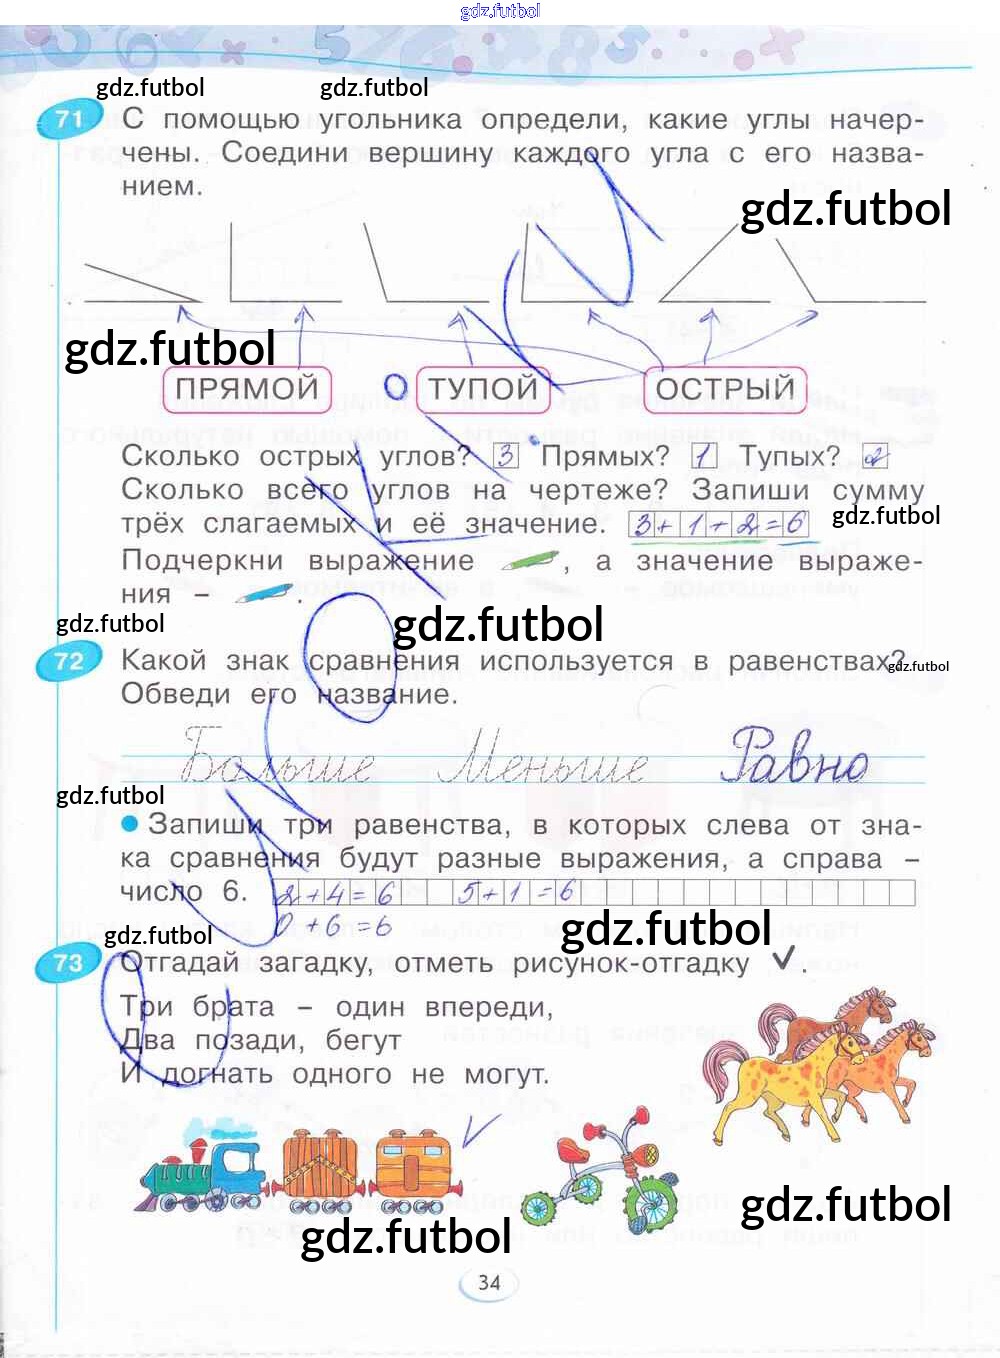 gdz.futbol
gdz.futbol gdz.futbol
71 С помощью угольника определи, какие углы начер-
чены. Соедини вершину каждого угла с его назва-
нием.
gdz.futbol
gdz.futbol
ПРЯМОЙ ТУПОЙ ОСТРЫЙ
Сколько острых углов? 3 Прямых? 1 Тупых? 2
Сколько всего углов на чертеже? Запиши сумму
трёх слагаемых и её значение. 3+1+2=6
gdz.futbol
Подчеркни выражение , а значение выраже-
ния – .
gdz.futbol
gdz.futbol
72 Какой знак сравнения используется в равенствах?
gdz.futbol
Обведи его название.
Больше Меньше Равно
gdz.futbol
Запиши три равенства, в которых слева от зна-
ка сравнения будут разные выражения, а справа –
число 6. 2+4=6 5+1=6
0+6=6
gdz.futbol
gdz.futbol
73 Отгадай загадку, отметь рисунок-отгадку ✓.
Три брата – один впереди,
Два позади, бегут
И догнать одного не могут.
gdz.futbol
gdz.futbol
34